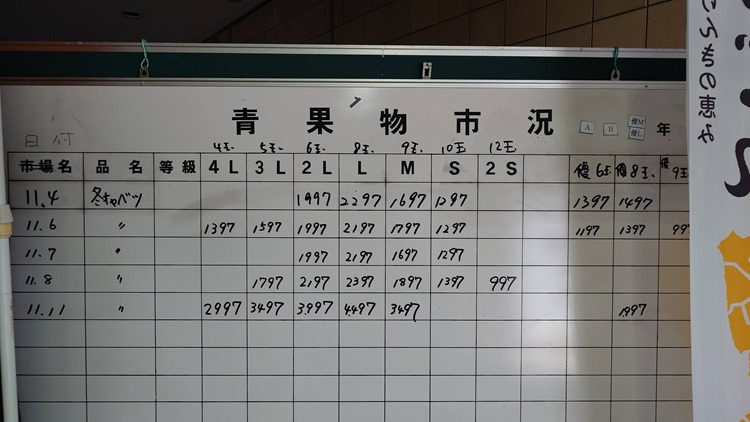 青果物市況
A B 優M 優L 年
日付 4玉 5玉 6玉 8玉 9玉 10玉 12玉
市場名 品名 等級 4L 3L 2L L M S 2S 優6玉 優8玉 優9玉
11.4 冬キャベツ 1997 2297 1697 1297 1397 1497
11.6 〃 1397 1597 1997 2197 1797 1297 1197 1397 997
11.7 〃 1997 2197 1697 1297
11.8 〃 1797 2197 2397 1897 1397 997
11.11 〃 2997 3497 3997 4497 3497 1997
けんもの恵み